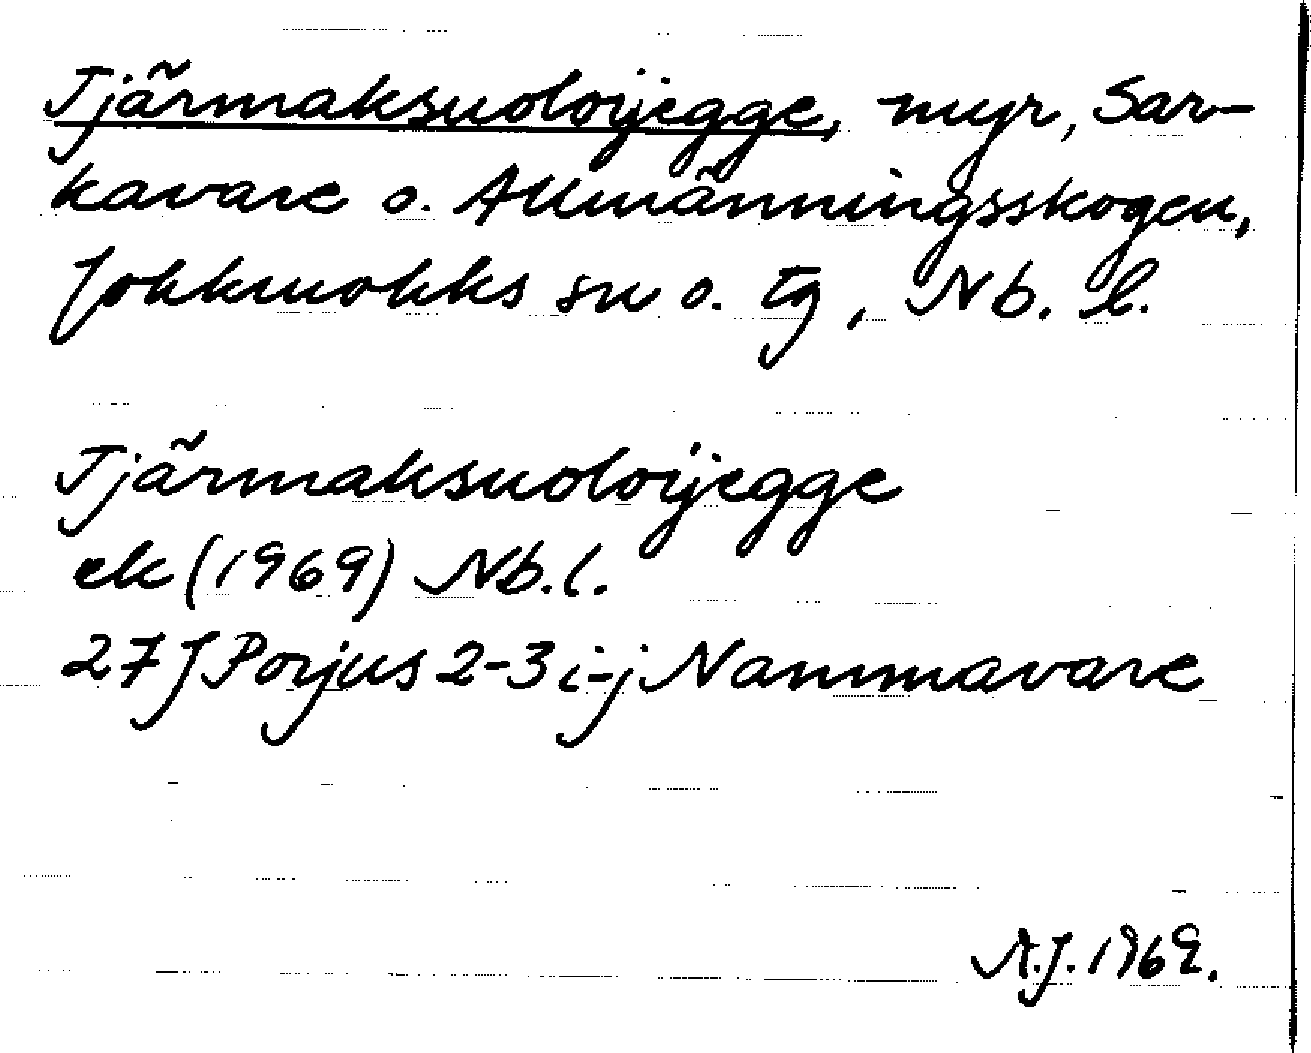 Tjärmaksuoloijegge, myr, Sar-
kavare o. Allmänningsskogen,
Jokkmokks sn o. tg, Nb. l.
Tjärmaksuoloijegge
ek (1969) Nb. l.
27 J Porjus 2-3 i-j Nammavare
A.J. 1969.